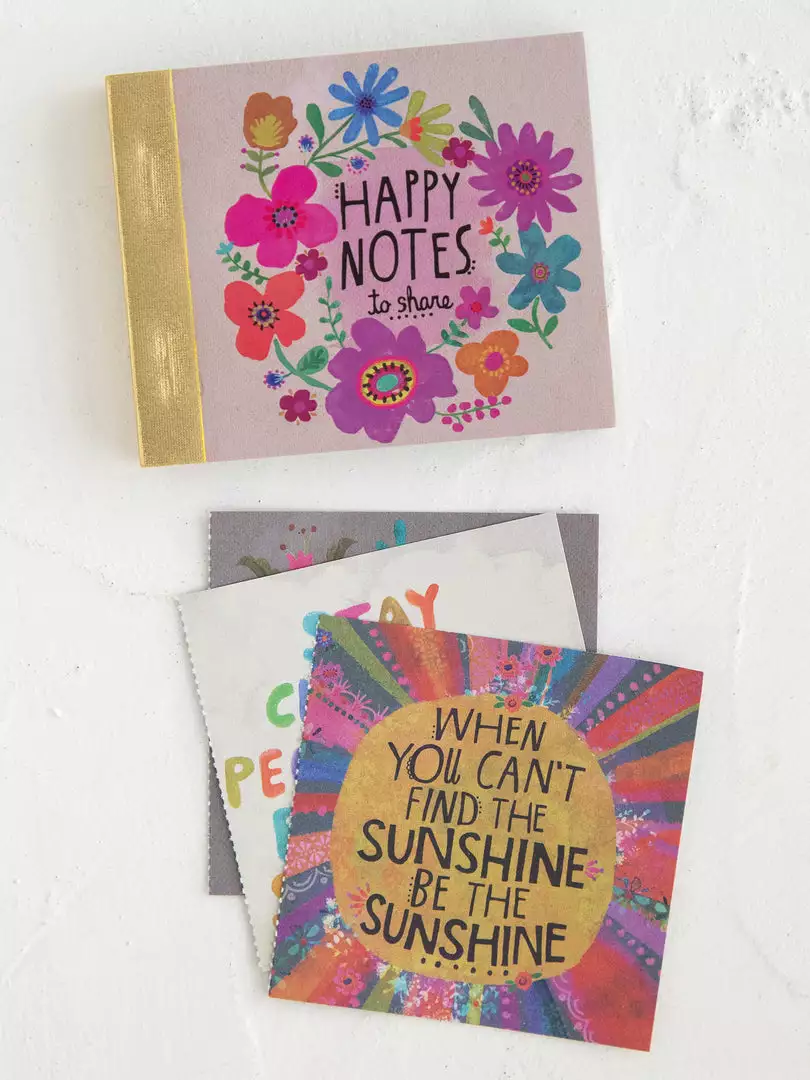 HAPPY
NOTES
to share
STAY
WHEN
YOU CAN'T
FIND THE
SUNSHINE
BE THE
SUNSHINE